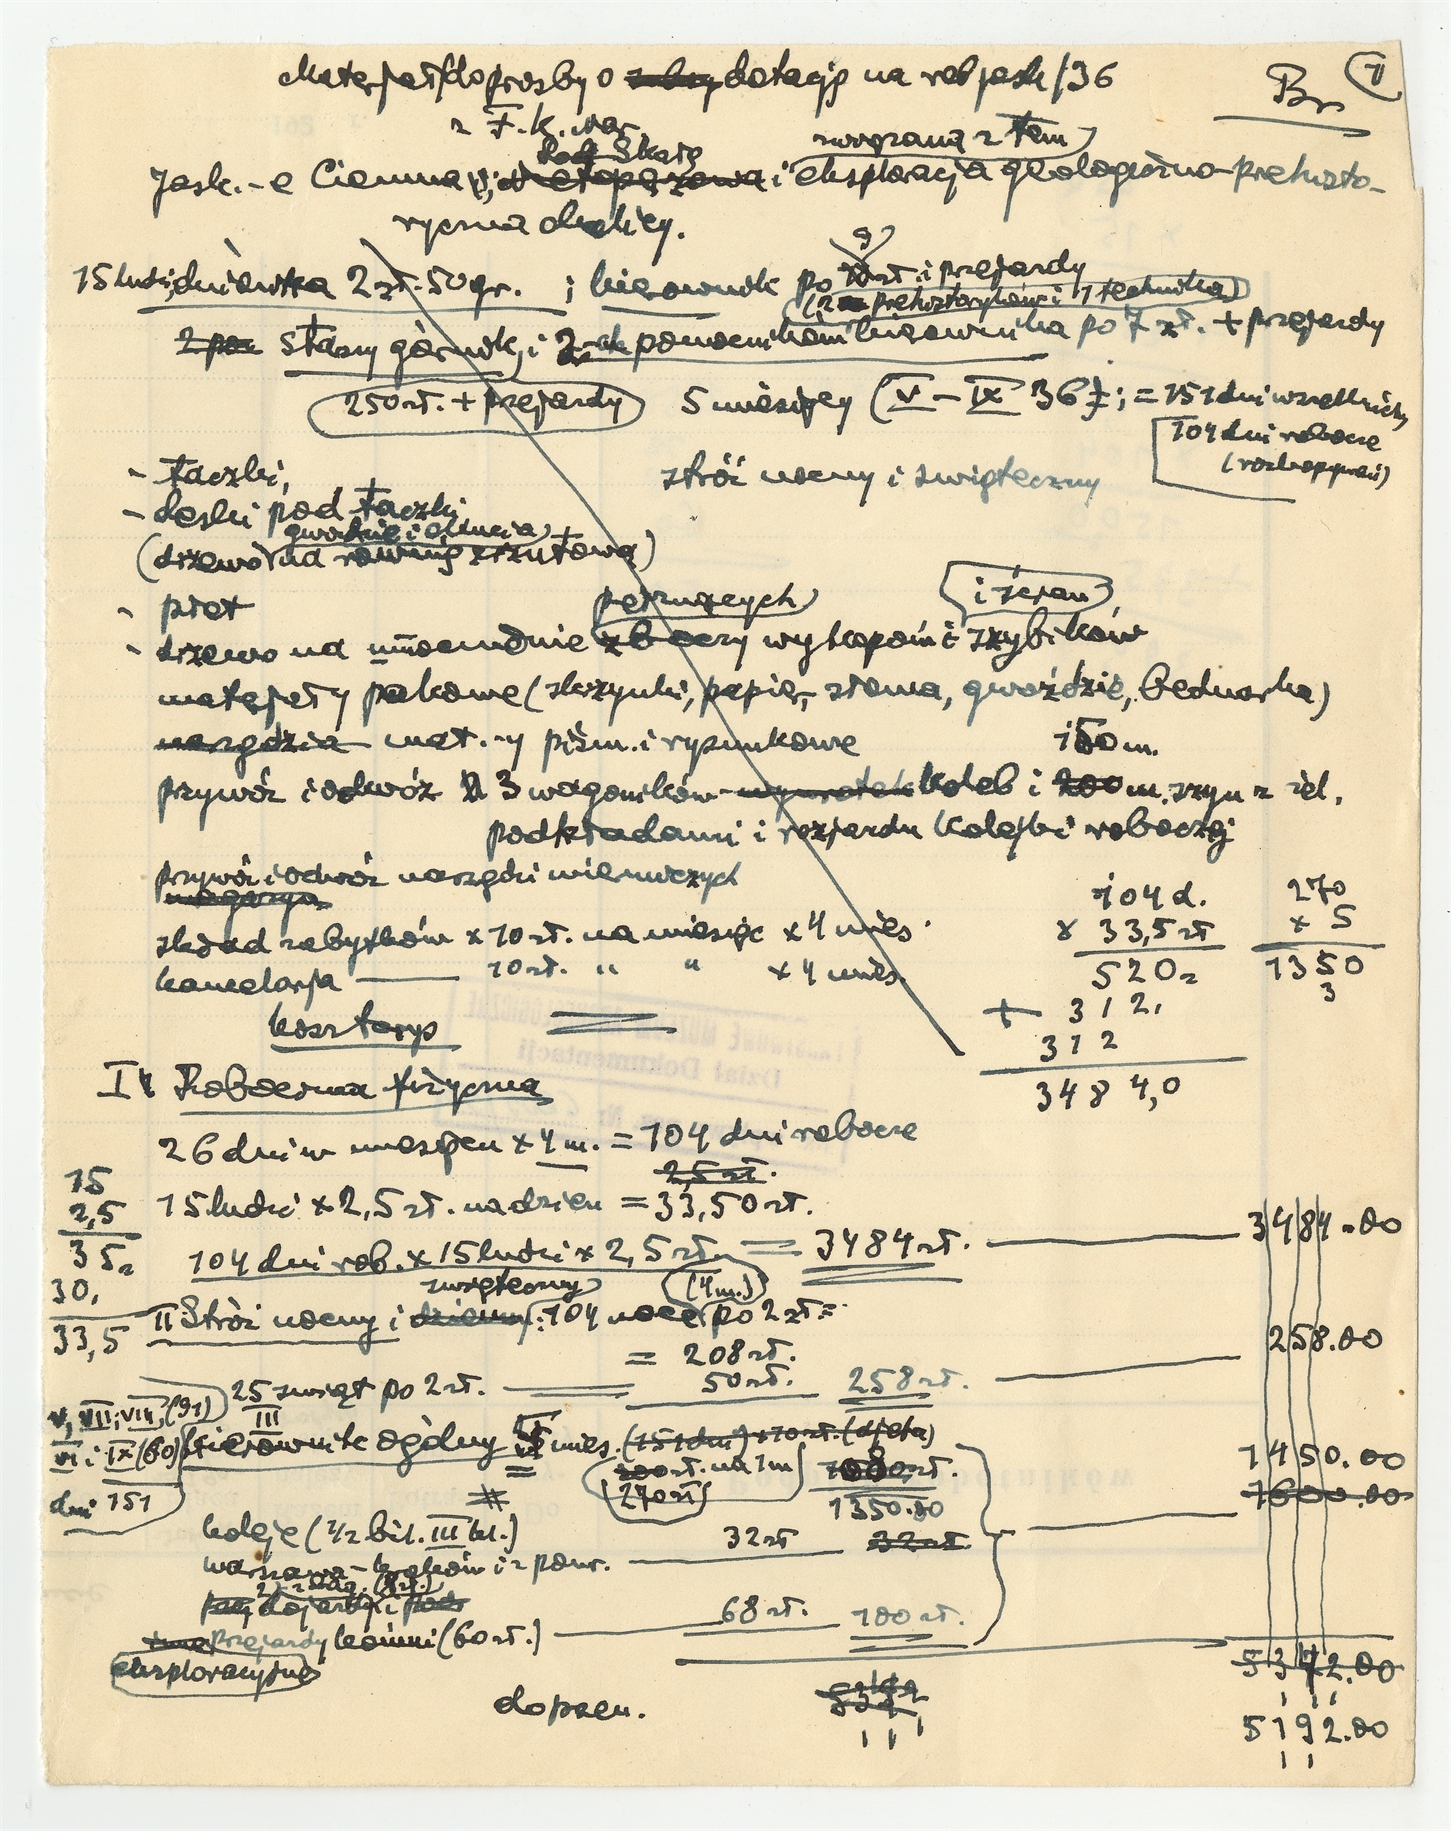 Materjał do prośby o dotację na rob jask/36
Br
1
z F. K. Nar.
pod Skałą
związaną z tem
Jask.-e Ciemna, i eksploracja geologiczno-prehisto-
ryczna okolicy.
9
15 ludzi, dniówka 2 zł. 50 gr. ; kierownik po zł. i przejazdy
(2 prehistoryków i 1 technika)
stary górnik, i 2 pomocnikom kierownika po 7 zł. + przejazdy
250 zł. + przejazdy
5 miesięcy (V – IX 36); = 151 dni wszystkich,
104 dni robocze
(rozkopywań)
- taczki,
stróż nocny i świąteczny
- deski pod taczki
gwoździe i okucia
(drzewo na zrzutową)
- płot
pętrzących
i ścian
- drzewo na umocnienie wykopów i szybików
materjały pakowe (skrzynki, papier, słoma, gwoździe, bednarka)
mat.-y piśm. i rysunkowe
150 m.
przywóz i odwóz 3 wagoników koleb i m. szyn z żel.
podkładami i rozjazdu kolejki roboczej
przywóz i odwóz narzędzi wiertniczych
skład zabytków x 10 zł. na miesiąc x 4 mies.
kancelarja — 10 zł. " " x 4 mies.
104 d.
x 33,5 zł
520
+ 312
312
3484,0
270
x 5
1350
3
kosztorys
I. Robocizna fizyczna
26 dni w miesiącu x 4 m. = 104 dni robocze
2,5 zł.
15 ludzi x 2,5 zł. na dzień = 33,50 zł.
15
2,5
35
30,
33,5
104 dni rob. x 15 ludzi x 2,5 zł. = 3484 zł. — 3484.00
świąteczny
(4 m.)
II Stróż nocny i : 104 noce po 2 zł =
= 208 zł.
258.00
25 świąt po 2 zł. — 50 zł. 258 zł.
V, VII i VIII (91)
VI i IX (60)
dni 151
III
Kierownik ogólny mies. (151 dni) x 10 zł. (djeta)
zł. na 1 m
270 zł
1350.00
1450.00
1600.00
koleje (1/2 bil. III kl.)
Warszawa–Kraków i z powr. — 32 zł 32 zł.
dojazdy i
przejazdy końmi (60 zł.) — 68 zł. 100 zł.
eksploracyjne
5342.00
do przen.
5192.00